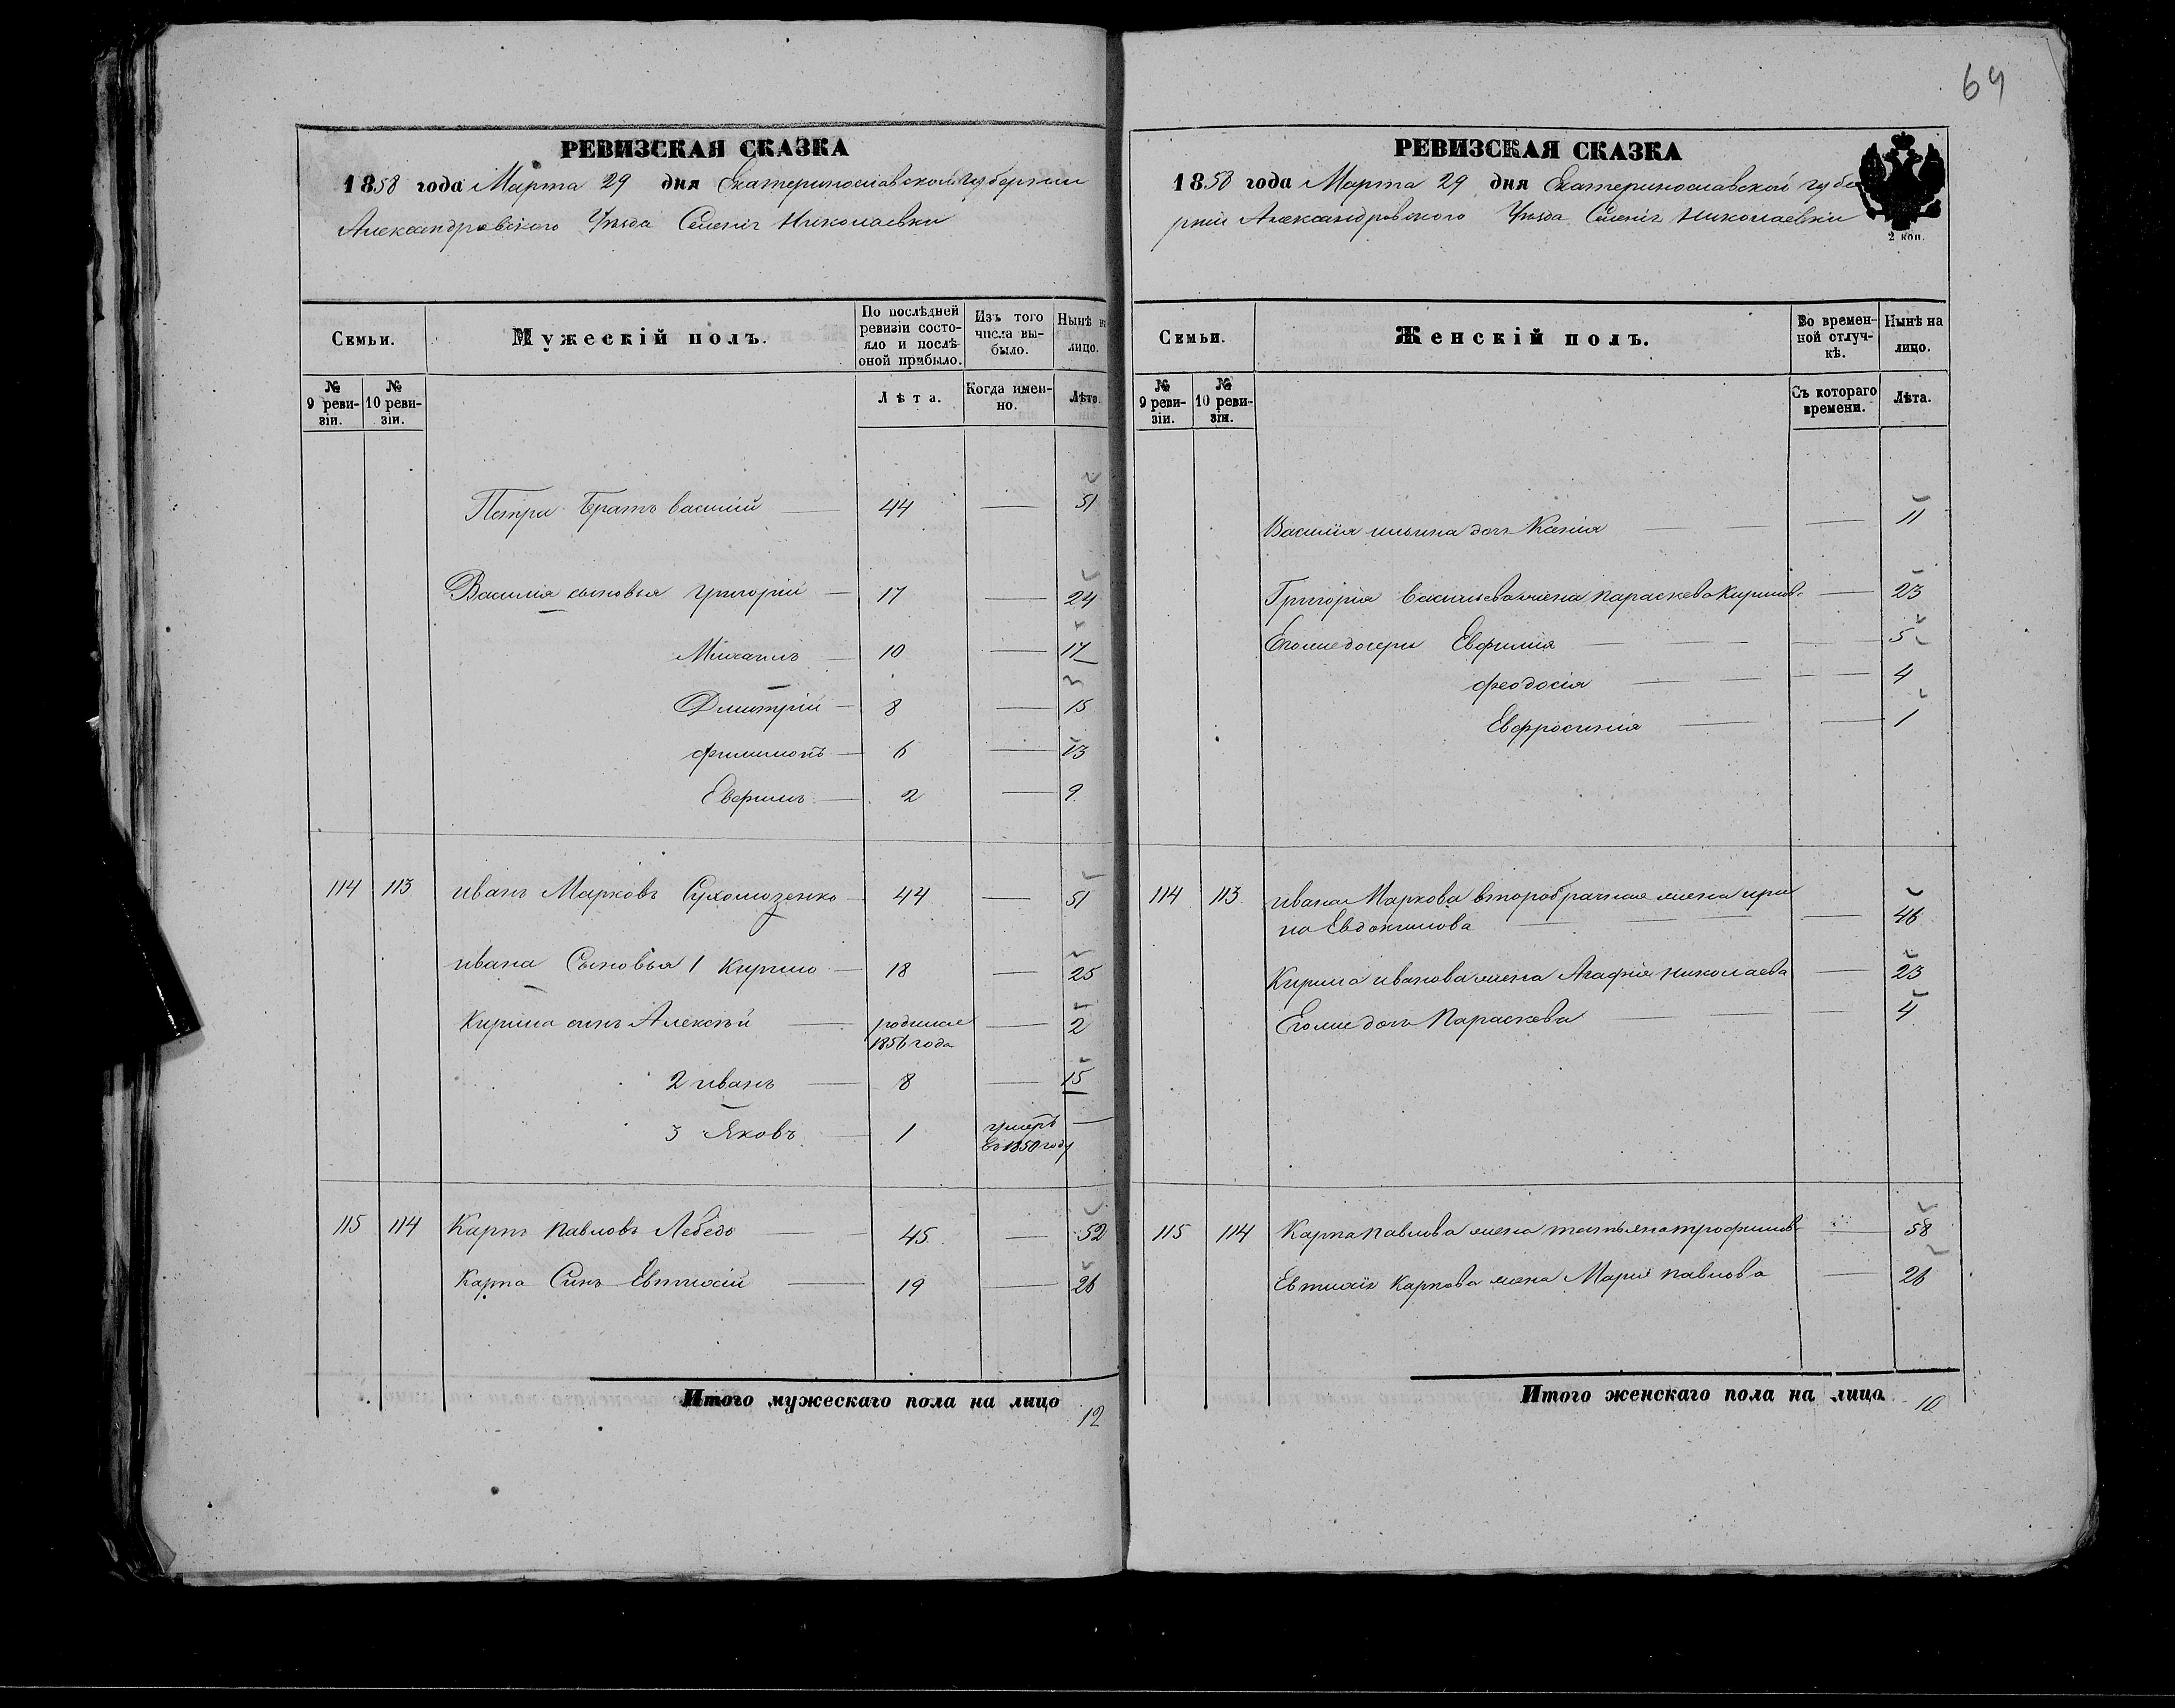 64
РЕВИЗСКАЯ СКАЗКА
1858 года Марта 29 дня Екатеринославской губернии
Александровского Уезда Селенія Николаевки
Семьи.
Мужескій полъ.
По послѣдней ревизіи состояло и послѣ оной прибыло.
Изъ того числа выбыло.
Нынѣ на лицо.
№ 9 ревизіи.
№ 10 ревизіи.
Лѣта.
Когда именно.
Лѣта.
Петра Братъ василій — 44 — 51
Василія сыновья григорій — 17 — 24
Михаилъ — 10 — 17
Дмитрій — 8 — 15
филимонъ — 6 — 13
Евфимъ — 2 — 9
114 113 иванъ Марковъ Сухомозенко 44 — 51
ивана Сыновья 1 Кирило — 18 — 25
Кирила синъ Алексѣй — родился 1856 года — 2
2 иванъ — 8 — 15
3 Яковъ — 1 умеръ въ 1850 году —
115 114 Карпъ павловъ Лебедь — 45 — 52
Карпа Синъ Евтихій — 19 — 26
Итого мужескаго пола на лицо 12
РЕВИЗСКАЯ СКАЗКА
1858 года Марта 29 дня Екатеринославской губе
рніи Александровского Уезда Селенія Николаевки
2 коп.
Семьи.
Женскій полъ.
Во временной отлучкѣ.
Нынѣ на лицо.
№ 9 ревизіи.
№ 10 ревизіи.
Съ котораго времени.
Лѣта.
Василія ильина дочь — — 11
Григорія васильева жена параскева Кирилов. — 23
Егоже дочери Евфимія — — 5
феодосія — — 4
Евфросинія — — 1
114 113 ивана Маркова второбрачная жена ири
на Евдокимова — — 46
Кирила иванова жена Агафія николаева — 23
Егоже дочь Параскева — — 4
115 114 Карпа павлова жена татьяна трофимов — 58
Евтихія Карпова жена Марія павлова — 26
Итого женскаго пола на лицо 10